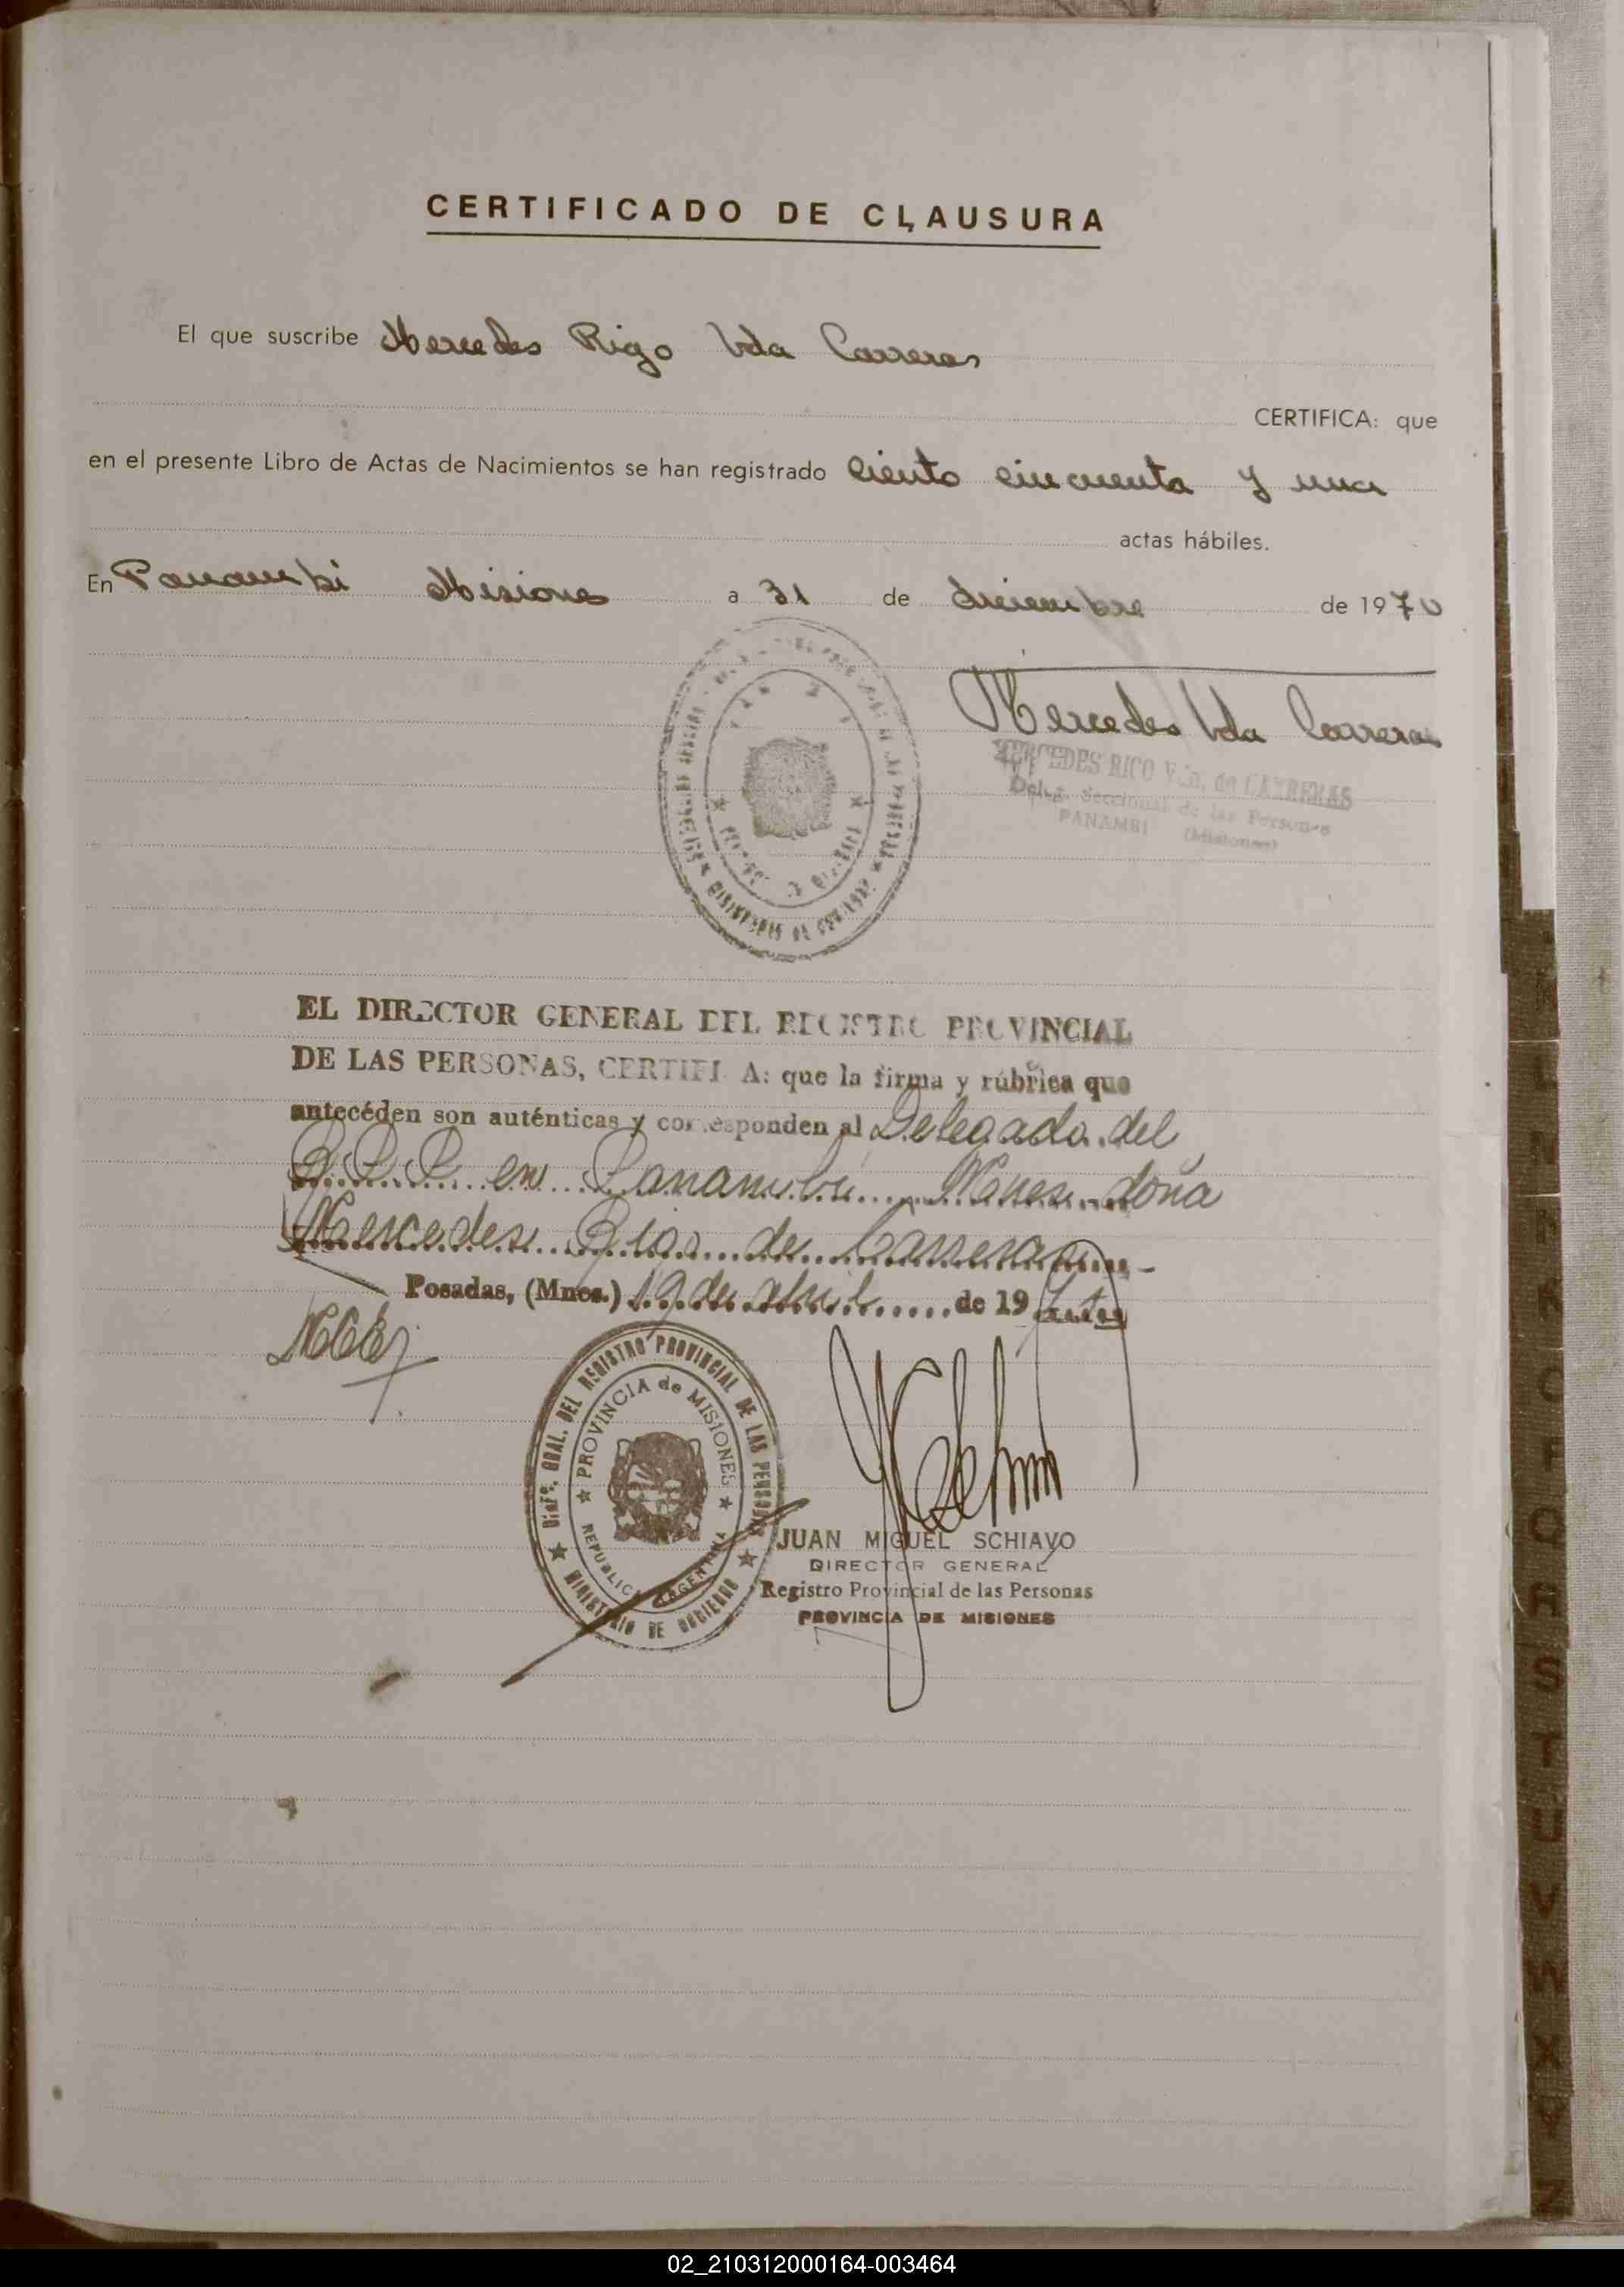 CERTIFICADO DE CLAUSURA
El que suscribe Mercedes Rigo Vda Carreras
CERTIFICA: que
en el presente Libro de Actas de Nacimientos se han registrado Ciento cincuenta y una
actas hábiles.
En Panambi Misiones a 31 de diciembre de 1970
Mercedes Vda Carreras
MERCEDES RIGO Vda. de CARRERAS
Deleg. Seccional de las Personas
PANAMBI (Misiones)
EL DIRECTOR GENERAL DEL REGISTRO PROVINCIAL
DE LAS PERSONAS, CERTIFI A: que la firma y rúbrica que
antecéden son auténticas y corresponden al Delegada del
R.P.P. en Panambí Mnes. doña
Mercedes Rigo de Carreras
Posadas, (Mnes.) 19 de abril de 19
DIREC. GRAL. DEL REGISTRO PROVINCIAL DE LAS PERSONAS
PROVINCIA de MISIONES
REPUBLICA ARGENTINA
MINISTERIO DE GOBIERNO
JUAN MIGUEL SCHIAVO
DIRECTOR GENERAL
Registro Provincial de las Personas
PROVINCIA DE MISIONES
N
Ñ
O
P
Q
R
S
T
U
V
W
X
Y
Z
02_210312000164-003464